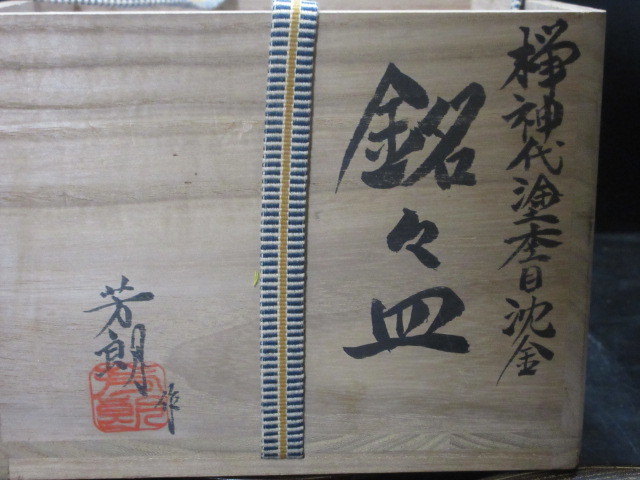 欅神代塗杢目沈金
銘々皿
芳朗作